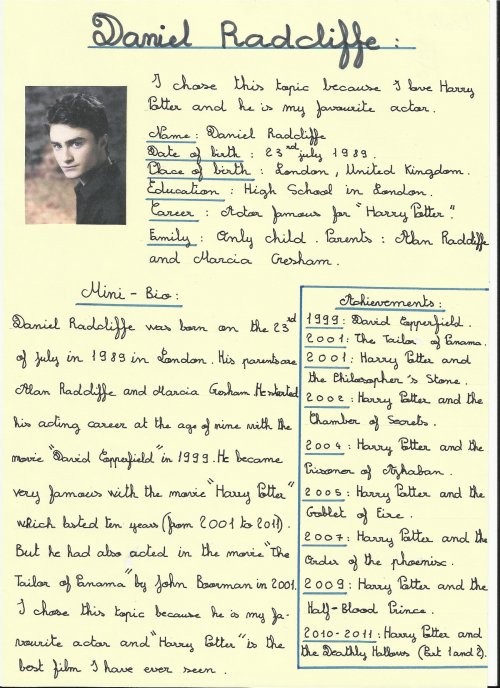 Daniel Radcliffe :
I chose this topic because I love Harry
Potter and he is my favourite actor.
Name : Daniel Radcliffe
Date of birth : 23rd july 1989.
Place of birth : London, United Kingdom.
Education : High School in London.
Career : Actor famous for "Harry Potter".
Family : Only child. Parents : Alan Radcliffe
and Marcia Gresham.
Mini - Bio :
Daniel Radcliffe was born on the 23rd
of july in 1989 in London. His parents are
Alan Radcliffe and Marcia Gresham. He started
his acting career at the age of nine with the
movie "David Copperfield" in 1999. He became
very famous with the movie "Harry Potter"
which lasted ten years (from 2001 to 2011).
But he had also acted in the movie "The
Tailor of Panama" by John Boorman in 2001.
I chose this topic because he is my fa-
vourite actor and "Harry Potter" is the
best film I have ever seen.
Achievements :
1999 : David Copperfield.
2001 : The Tailor of Panama.
2001 : Harry Potter and
the Philosopher's Stone.
2002 : Harry Potter and the
Chamber of Secrets.
2004 : Harry Potter and the
Prisoner of Azkaban.
2005 : Harry Potter and the
Goblet of Fire.
2007 : Harry Potter and the
Order of the phoenix.
2009 : Harry Potter and the
Half-Blood Prince.
2010-2011 : Harry Potter and
the Deathly Hallows (Part 1 and 2).